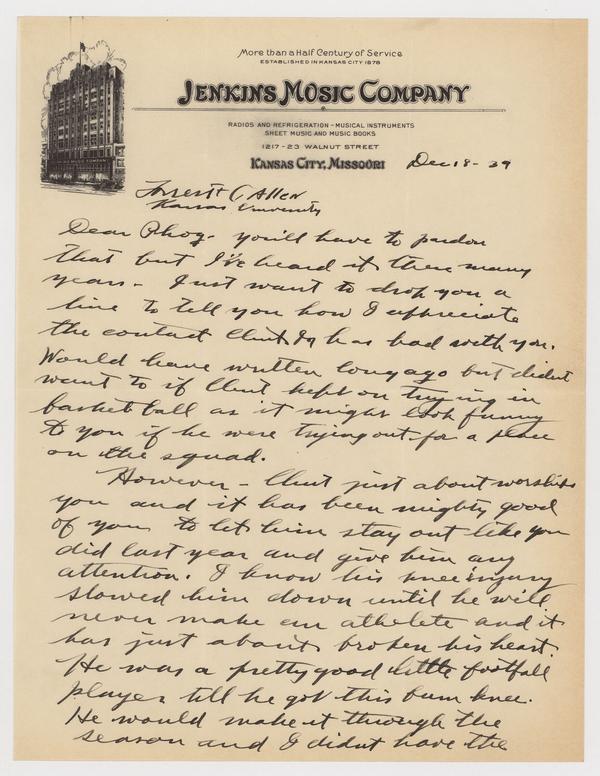 More than a Half Century of Service
ESTABLISHED IN KANSAS CITY 1878
JENKINS MUSIC COMPANY
RADIOS AND REFRIGERATION - MUSICAL INSTRUMENTS
SHEET MUSIC AND MUSIC BOOKS
1217-23 WALNUT STREET
KANSAS CITY, MISSOURI
Dec 18 - 39
Forrest C Allen
Kansas University
Dear Phog - you'll have to pardon
that but I've heard it these many
years - Just want to drop you a
line to tell you how I appreciate
the contact Clint Jr has had with you.
Would have written long ago but didnt
want to if Clint kept on trying in
basket ball as it might look funny
to you if he were trying out for a place
on the squad.
However - Clint just about worships
you and it has been mighty good
of you to let him stay out like you
did last year and give him any
attention. I know his knee injury
slowed him down until he will
never make an athelete and it
has just about broken his heart.
He was a pretty good little football
player till he got this bum knee.
He would make it through the
season and I didnt have the